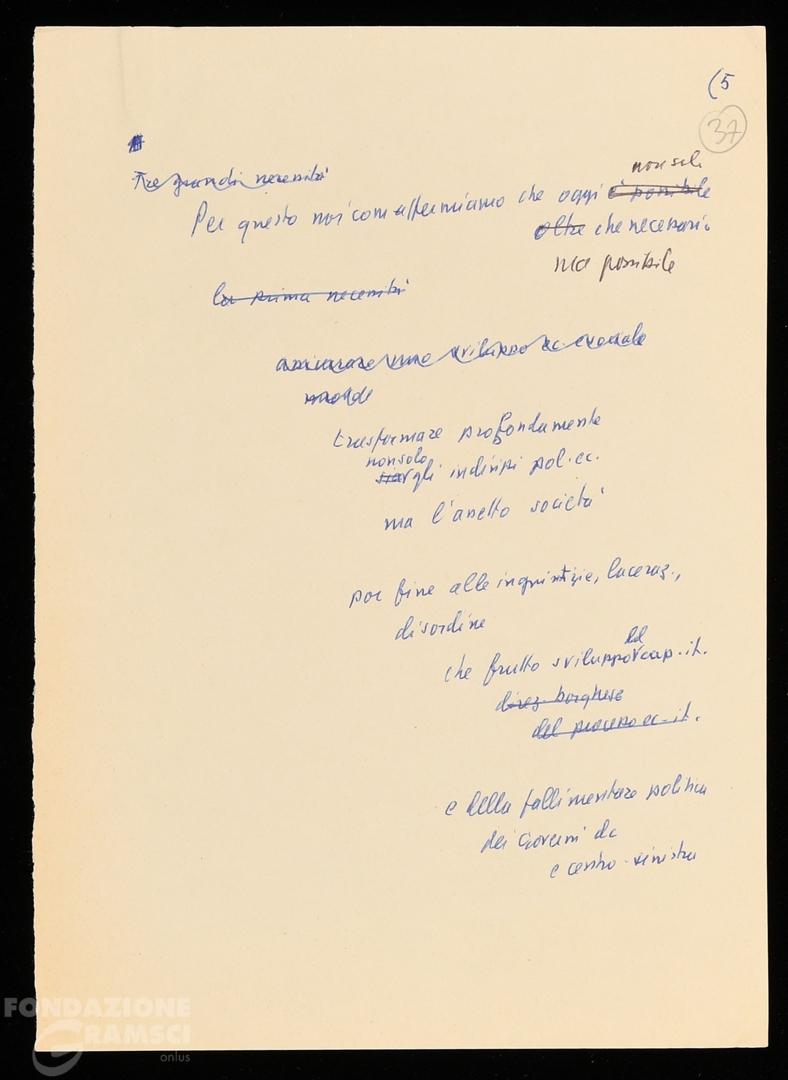 (5
37
Tre grandi necessità
non solo
Per questo noi com affermiamo che oggi è possibile
oltre che necessario
ma possibile
la prima necessità
assicurare uno sviluppo ec. e sociale
trasformare profondamente
non solo
sia gli indirizzi pol. ec.
ma l'assetto società
por fine alle ingiustizie, laceraz.,
disordine
che frutto sviluppo cap. it.
direz. borghese
del processo ec. it.
e della fallimentare politica
dei Governi dc
e centro-sinistra
FONDAZIONE
GRAMSCI
onlus